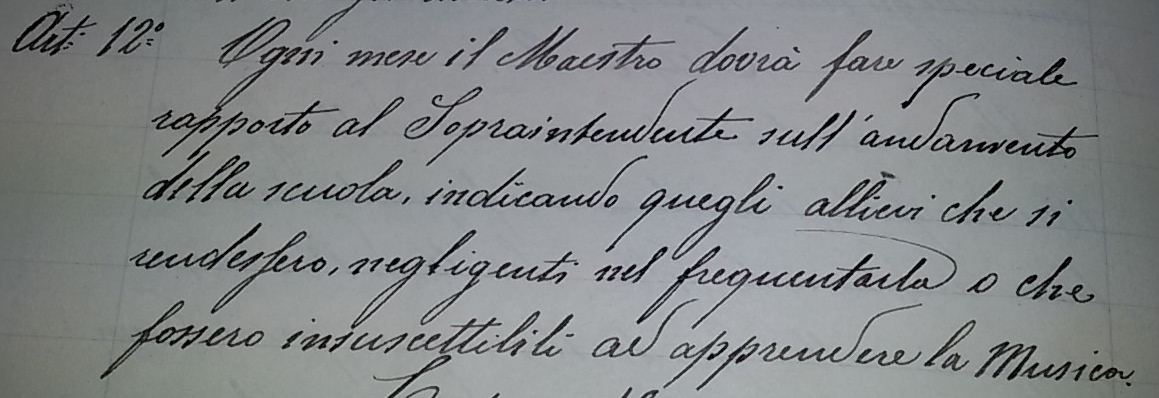 Art: 12° Ogni mese il Maestro dovrà fare speciale
rapporto al Sopraintendente sull'andamento
della scuola, indicando quegli allievi che si
rendessero, negligenti nel frequentarla o che
fossero insuscettibili ad apprendere la Musica.